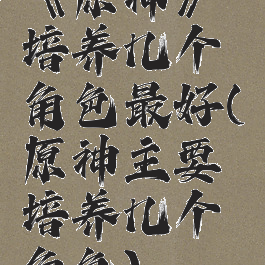 《原神》
培养几个
角色最好(
原神主要
培养几个
角色)